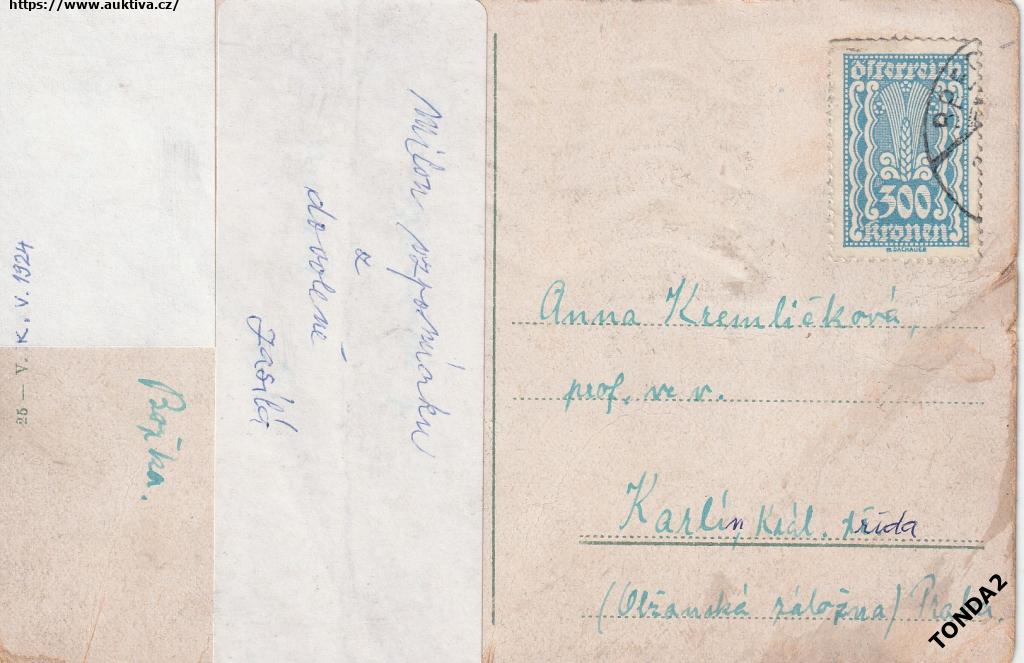 https://www.auktiva.cz/
Milou vzpomínku
z
dovolené
zasílá
Božka.
25 — V. K. V. 1924
Österreich
300
Kronen
R.DACHAUER
BREG
Anna Kremličková,
prof. ve v.
Karlín, Král. třída
(Olžanská záložna) Praha.
TONDA2